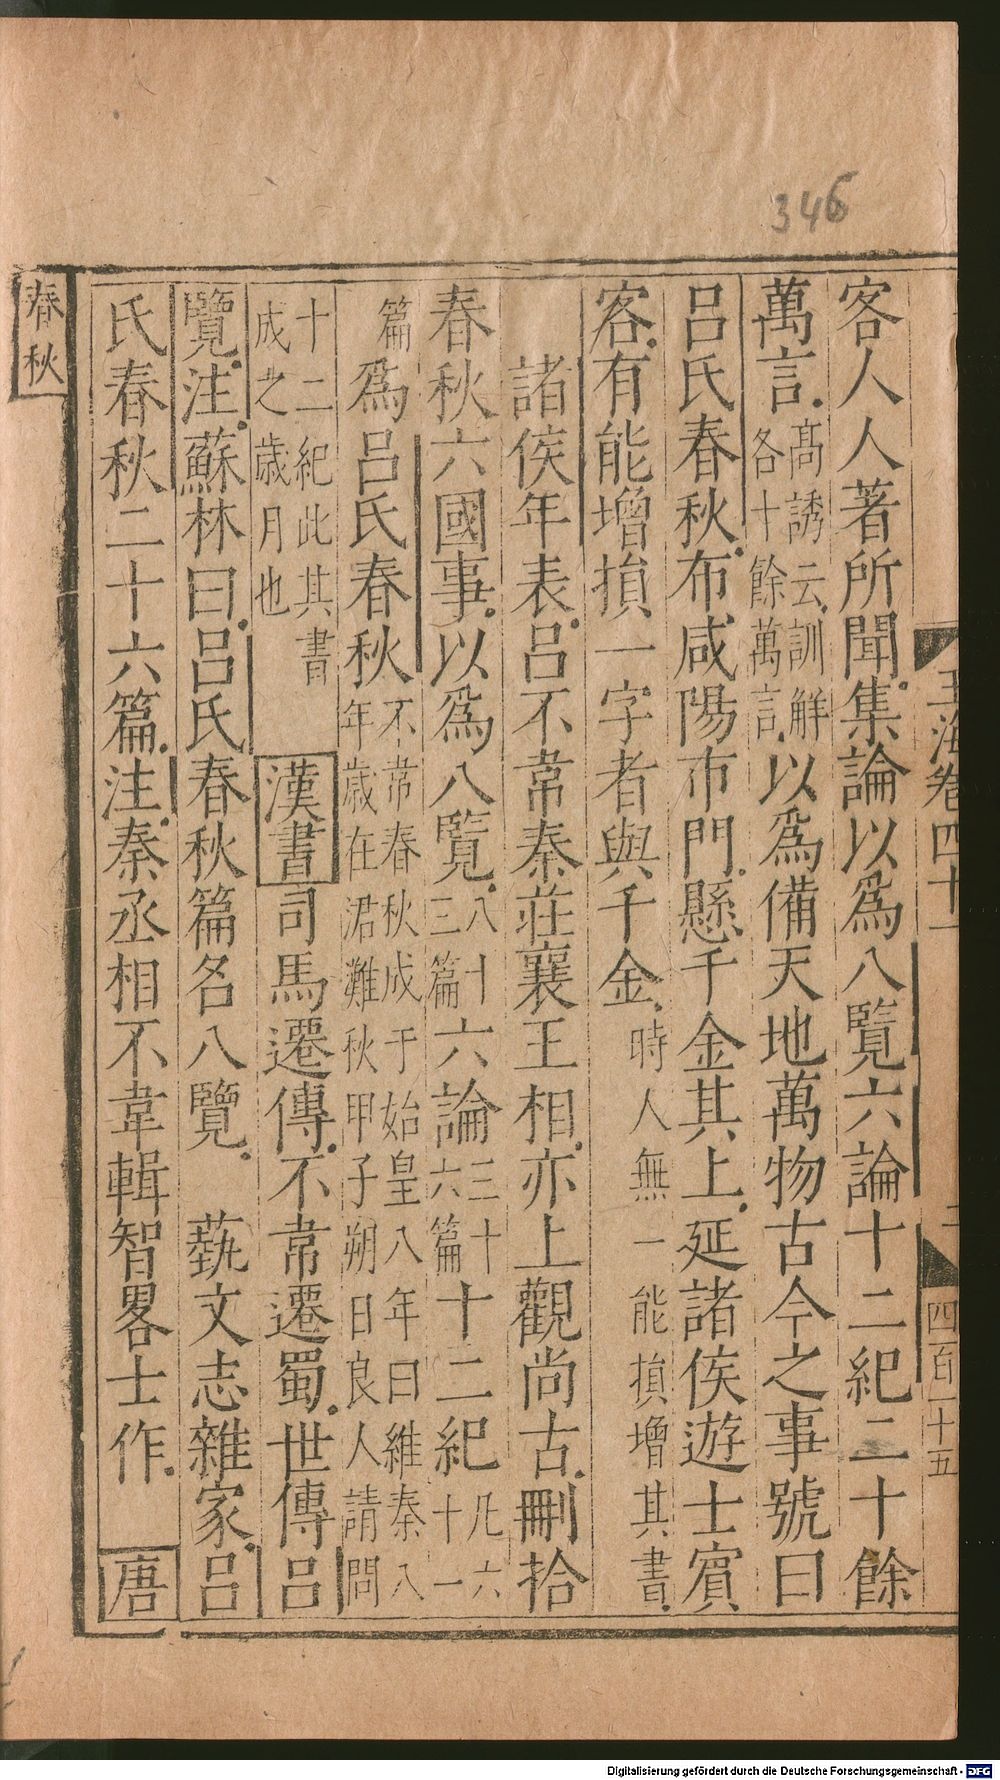 346
玉海卷四十一
二
四百一十五
客人人著所聞集論以爲八覽六論十二紀二十餘
萬言高誘云訓解各十餘萬言以爲備天地萬物古今之事號曰
呂氏春秋布咸陽市門懸千金其上延諸侯遊士賓
客有能增損一字者與千金時人無一能損增其書
諸侯年表呂不韋秦莊襄王相亦上觀尚古刪拾
春秋六國事以爲八覽八十三篇六論三十六篇十二紀凡六十一
篇爲呂氏春秋不韋春秋成于始皇八年曰維秦八年歲在涒灘秋甲子朔日良人請問
十二紀此其書成之歲月也漢書司馬遷傳不韋遷蜀世傳呂
覽注蘇林曰呂氏春秋篇名八覽 藝文志雜家呂
氏春秋二十六篇注秦丞相不韋輯智畧士作 唐
春秋
Digitalisierung gefördert durch die Deutsche Forschungsgemeinschaft - DFG